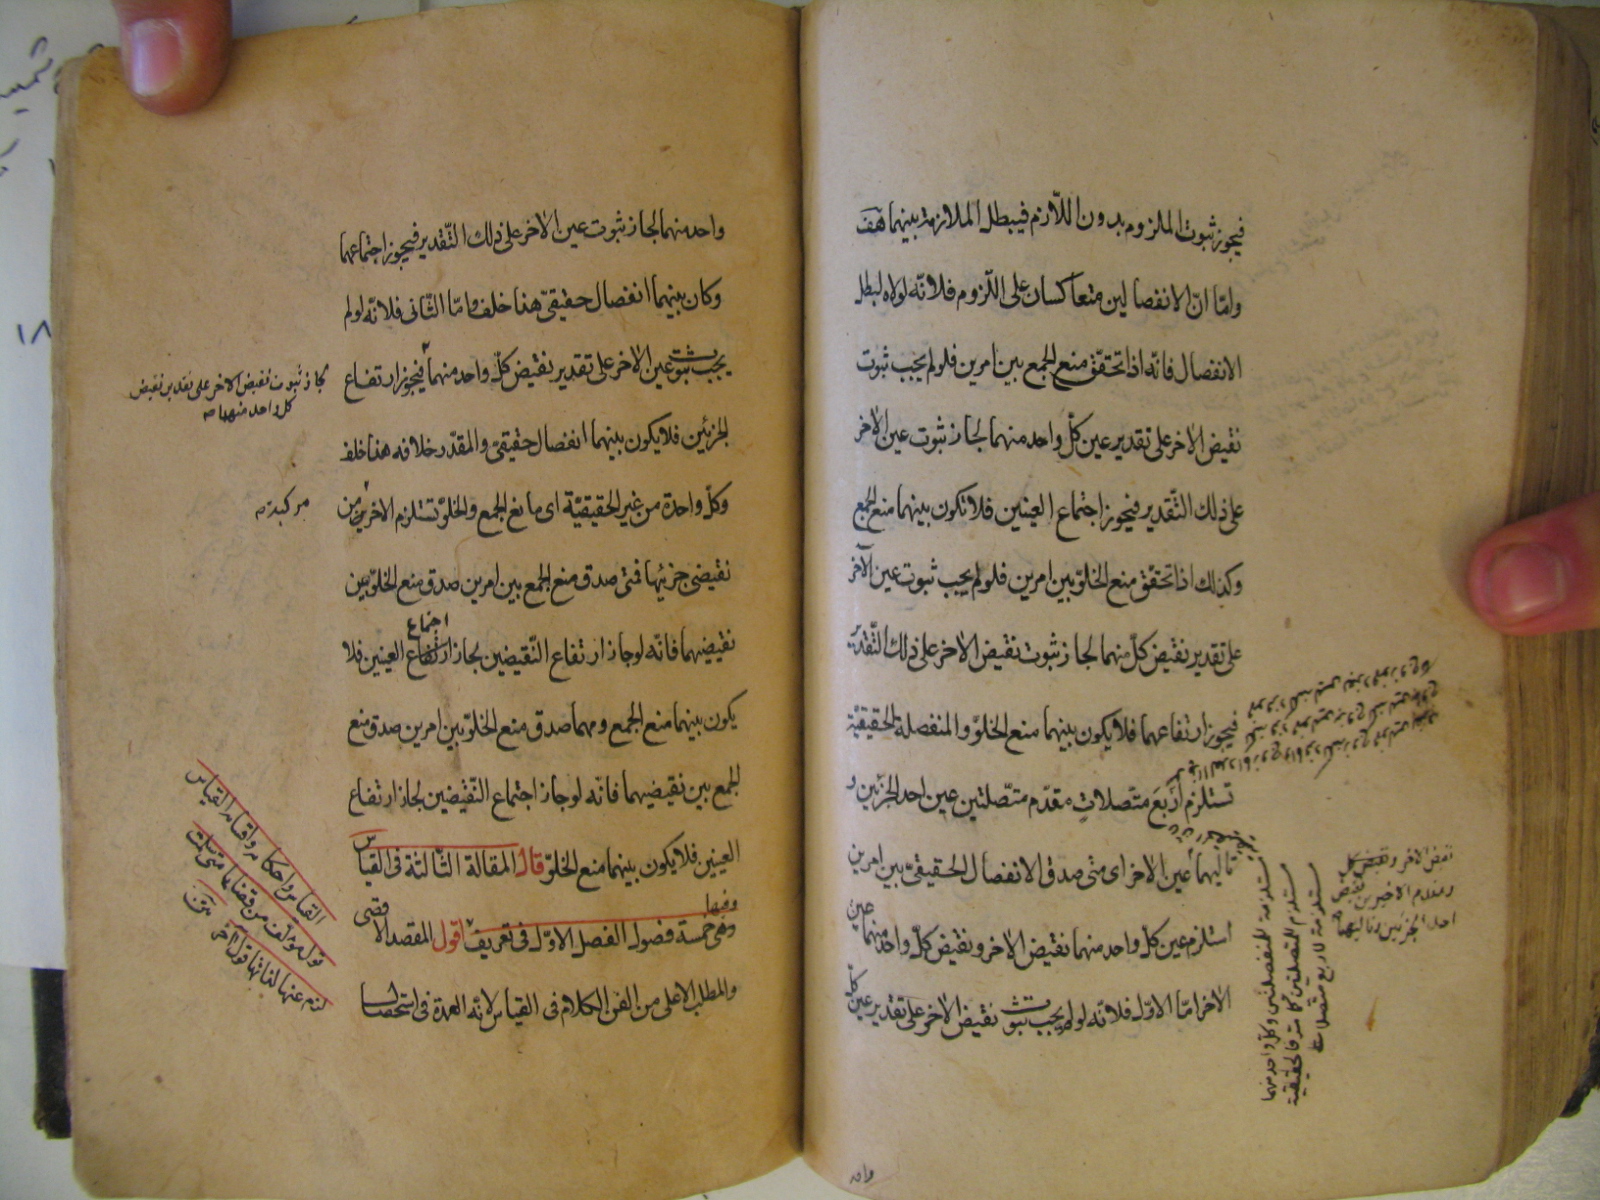 فيجوز ثبوت الملزوم بدون اللازم فيبطل الملازمة بينهما هف
وامّا انّ الانفصالين متعاكسان على اللزوم فلانّه لولاه لبطل
الانفصال فانّه اذا تحقّق منع الجمع بين امرين فلو لم يجب ثبوت
نقيض الاخر على تقدير عين كلّ واحد منهما لجاز ثبوت عين الاخر
على ذلك التّقدير فيجوز اجتماع العينين فلا تكون بينهما منع الجمع
وكذلك اذا تحقق منع الخلوّ بين امرين فلو لم يجب ثبوت عين الآخر
على تقدير نقيض كلّ منهما لجاز ثبوت نقيض الاخر على ذلك التّقدير
فيجوز ارتفاعهما فلا يكون بينهما منع الخلوّ والمنفصلة الحقيقيّة
تستلزم أربعَ متّصلاتٍ مقدّم متّصلتين عين احد الجزئين و
تاليهما عين الاخر اى متى صدق الانفصال الحقيقىّ بين امرين
استلزم عين كلّ واحد منهما نقيض الاخر ونقيض كلّ واحد منهما عين
الاخر امّا الاوّل فلانّه لو لم يجب ثبوت نقيض الاخر على تقدير عين كلّ
نقيض الاخر
ومقدم الاخيرين نقيض
احد الجزئين وتاليهما
مستلزمة للمنفصلتين وكل واحد منهما
مستلزم للمتصلتين كما مر فالحقيقية
مستلزمة لاربع متصلات
واحد منهما لجاز ثبوت عين الاخر على ذلك التّقدير فيجوز اجتماعهما
وكان بينهما انفصال حقيقىّ هذا خلف وامّا الثّانى فلانّه لو لم
يجب ثبوت عين الاخر على تقدير نقيض كلّ واحد منهما فيجوز ارتفاع
لجاز ثبوت نقيض الاخر على تقدير نقيض
كل واحد منهما صه
الجزئين فلا يكون بينهما انفصال حقيقىّ والمقدّر خلافه هذا خلف
وكلّ واحدة من غير الحقيقيّة اى مانع الجمع والخلوّ تستلزم الاخرى من
نقيضى جزئيها فمتى صدق منع الجمع بين امرين صدق منع الخلوّ بين
اجتماع
نقيضيهما فانّه لو جاز ارتفاع النّقيضين لجاز ارتفاع العينين فلا
يكون بينهما منع الجمع ومهما صدق منع الخلوّ بين امرين صدق منع
الجمع بين نقيضيهما فانّه لو جاز اجتماع النّقيضين لجاز ارتفاع
العينين فلا يكون بينهما منع الخلوّ قال المقالة الثّالثة فى القياس
وفيها
وهى خمسة فصول الفصل الاوّل فى تعريف اقول المقصد الاقصى
والمطلب الاعلى من الفن الكلام فى القياس لانّه العمدة فى استحصال
القياس واحكامه واقسامه القياس
قول مؤلف من قضايا متى سلمت
لزم عنها لذاتها قول آخر
١٨